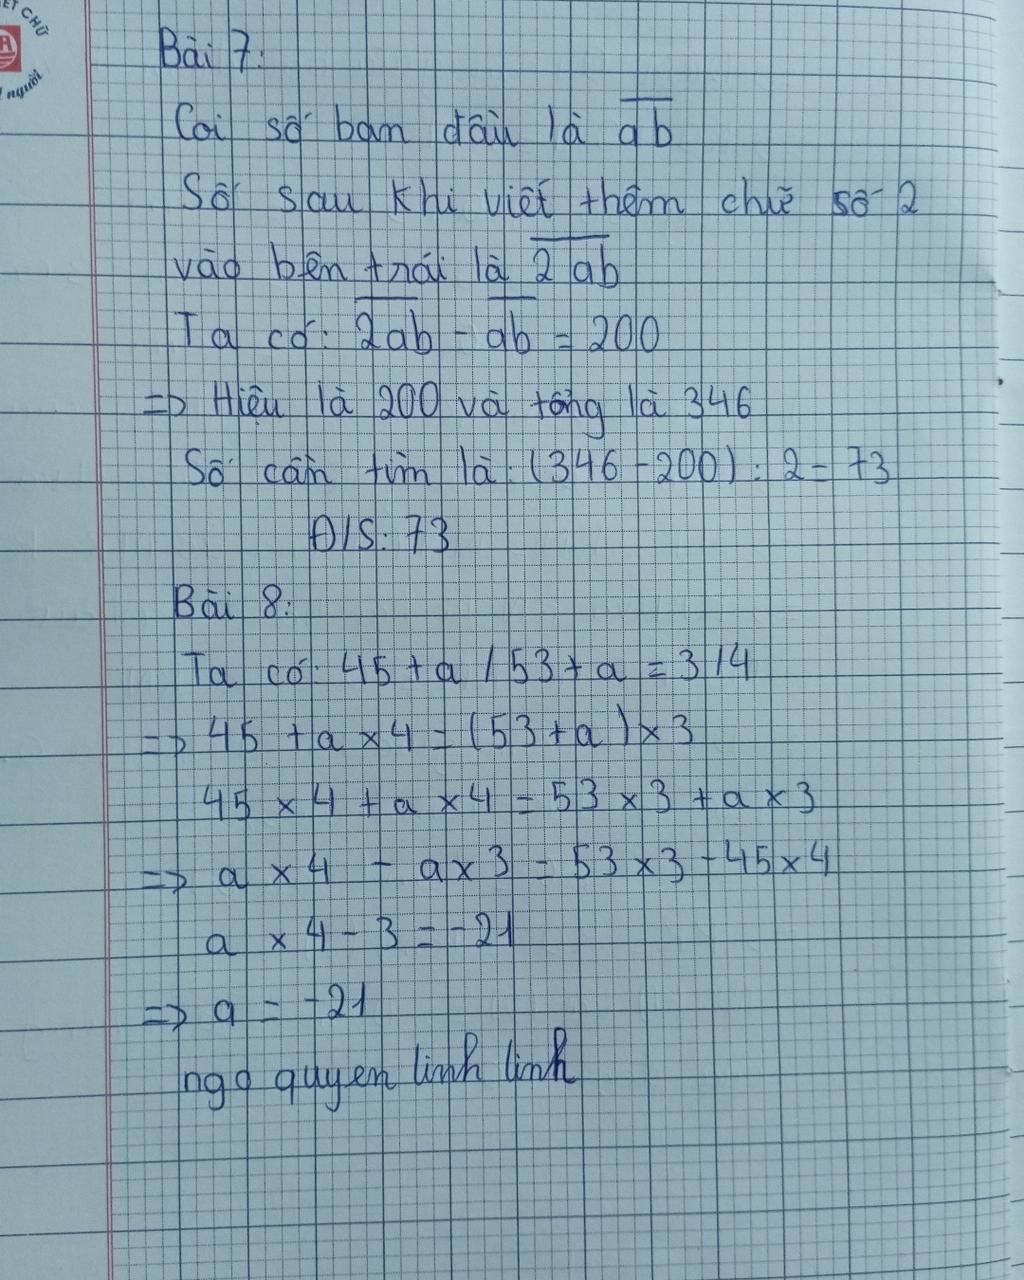 ẾT CHỮ
t người
Bài 7:
Coi số ban đầu là ab
Số sau khi viết thêm chữ số 2
vào bên trái là 2 ab
Ta có: 2ab - ab = 200
=> Hiệu là 200 và tổng là 346
Số cần tìm là: (346 - 200) : 2 = 73
Đ/S: 73
Bài 8:
Ta có: 45 + a / 53 + a = 3/4
=> 45 + a x 4 = (53 + a) x 3
45 x 4 + a x 4 = 53 x 3 + a x 3
=> a x 4 - a x 3 = 53 x 3 - 45 x 4
a x 4 - 3 = -21
=> a = -21
ngo quyen linh linh